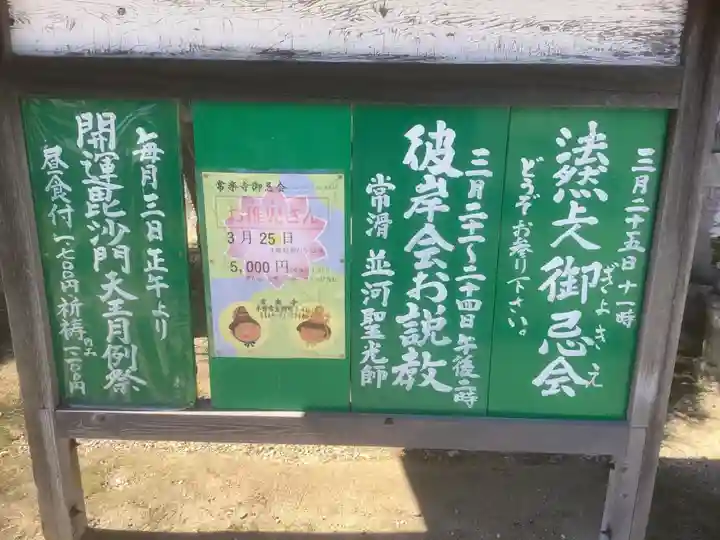 三月二十五日十一時
法然上人御忌会
ぎよきえ
どうぞお参り下さい。
三月二十一〜二十四日午後一時
彼岸会お説教
常滑 並河聖光師
常楽寺御忌会
お稚児さん
3月25日
5,000円
常楽寺
毎月三日正午より
開運毘沙門天王月例祭